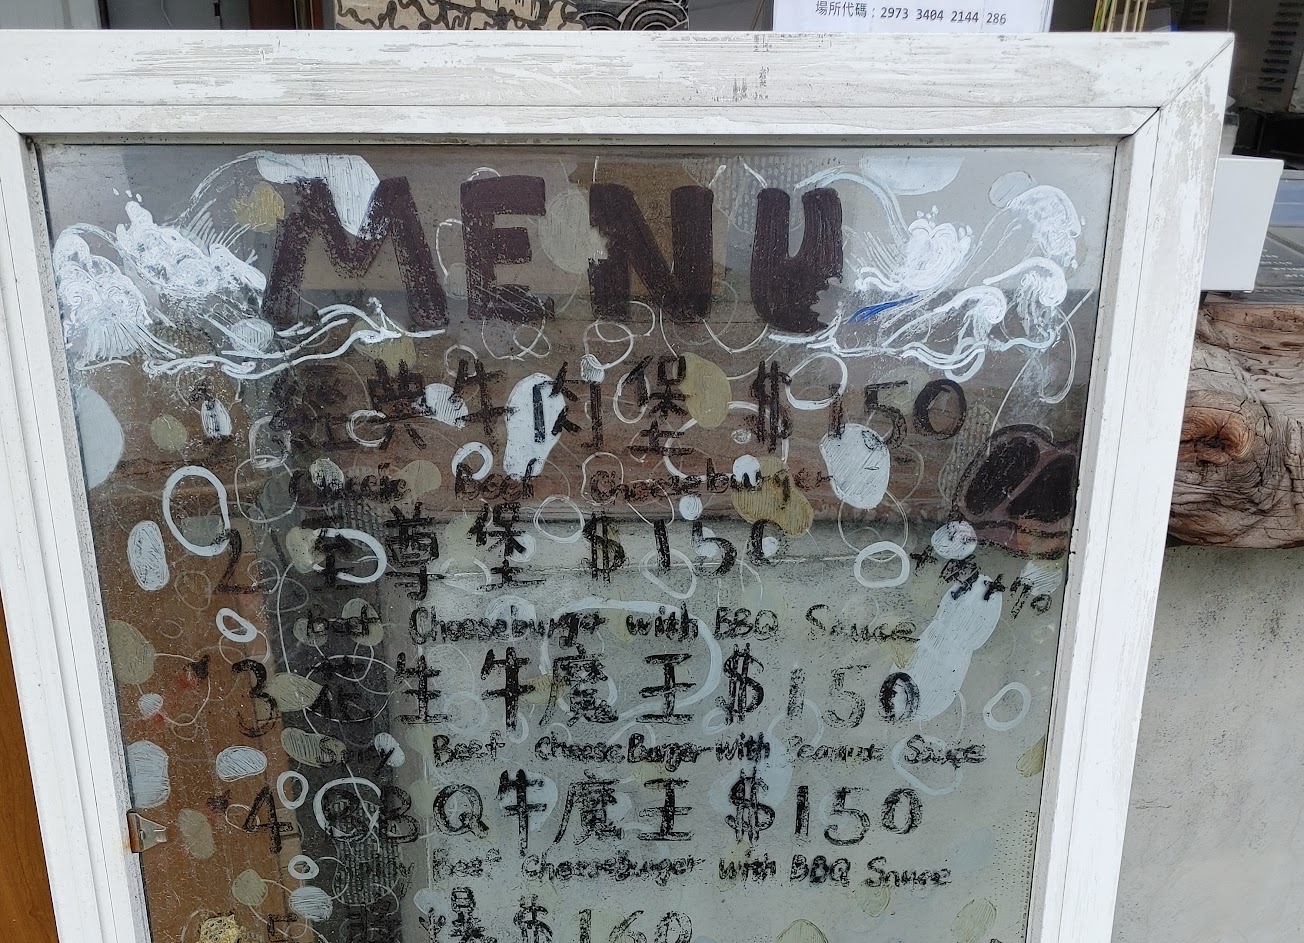 場所代碼：2973 3404 2144 286
MENU
1 經典牛肉堡 $150
Classic Beef Cheeseburger
2 至尊堡 $150
Beef Cheeseburger with BBQ Sauce
3 花生牛魔王 $150
Spicy Beef CheeseBurger with Peanut Sauce
4 BBQ牛魔王 $150
Beef Cheeseburger with BBQ Sauce
5 $160